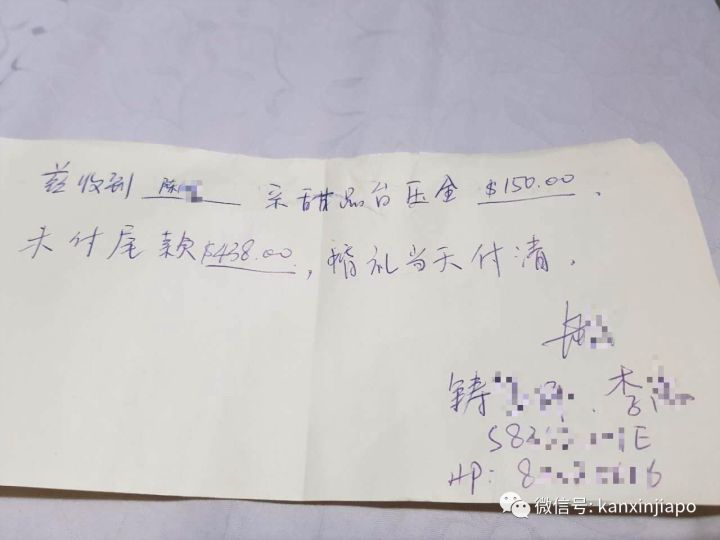 兹收到 陈 系甜品台压金 $150.00.
未付尾款$438.00, 婚礼当天付清.
铸 . 李
S8 1E
HP: 8 6
微信号: kanxinjiapo